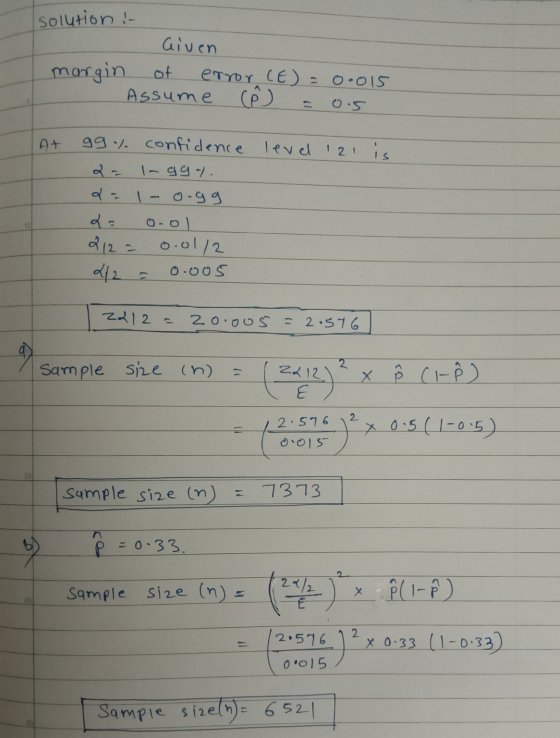 Solution :-
Given
margin of error (E) = 0.015
Assume (p̂) = 0.5
At 99 % confidence level 'z' is
α = 1 - 99 %.
α = 1 - 0.99
α = 0.01
α/2 = 0.01/2
α/2 = 0.005
Zα/2 = Z0.005 = 2.576
a)
Sample size (n) = (Zα/2 / E)² × p̂ (1-p̂)
= (2.576 / 0.015)² × 0.5 (1-0.5)
Sample size (n) = 7373
b) p̂ = 0.33.
Sample size (n) = (Zα/2 / E)² × p̂(1-p̂)
= (2.576 / 0.015)² × 0.33 (1-0.33)
Sample size(n) = 6521